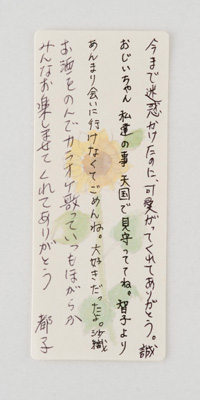 今まで迷惑かけたのに、可愛がってくれてありがとう。誠
おじいちゃん 私達の事 天国で見守っててね。智子より
あんまり会いに行けなくてごめんね。大好きだったよ。沙織
お酒をのんでカラオケ歌っていつもほがらか
みんなお楽しませてくれてありがとう 都子